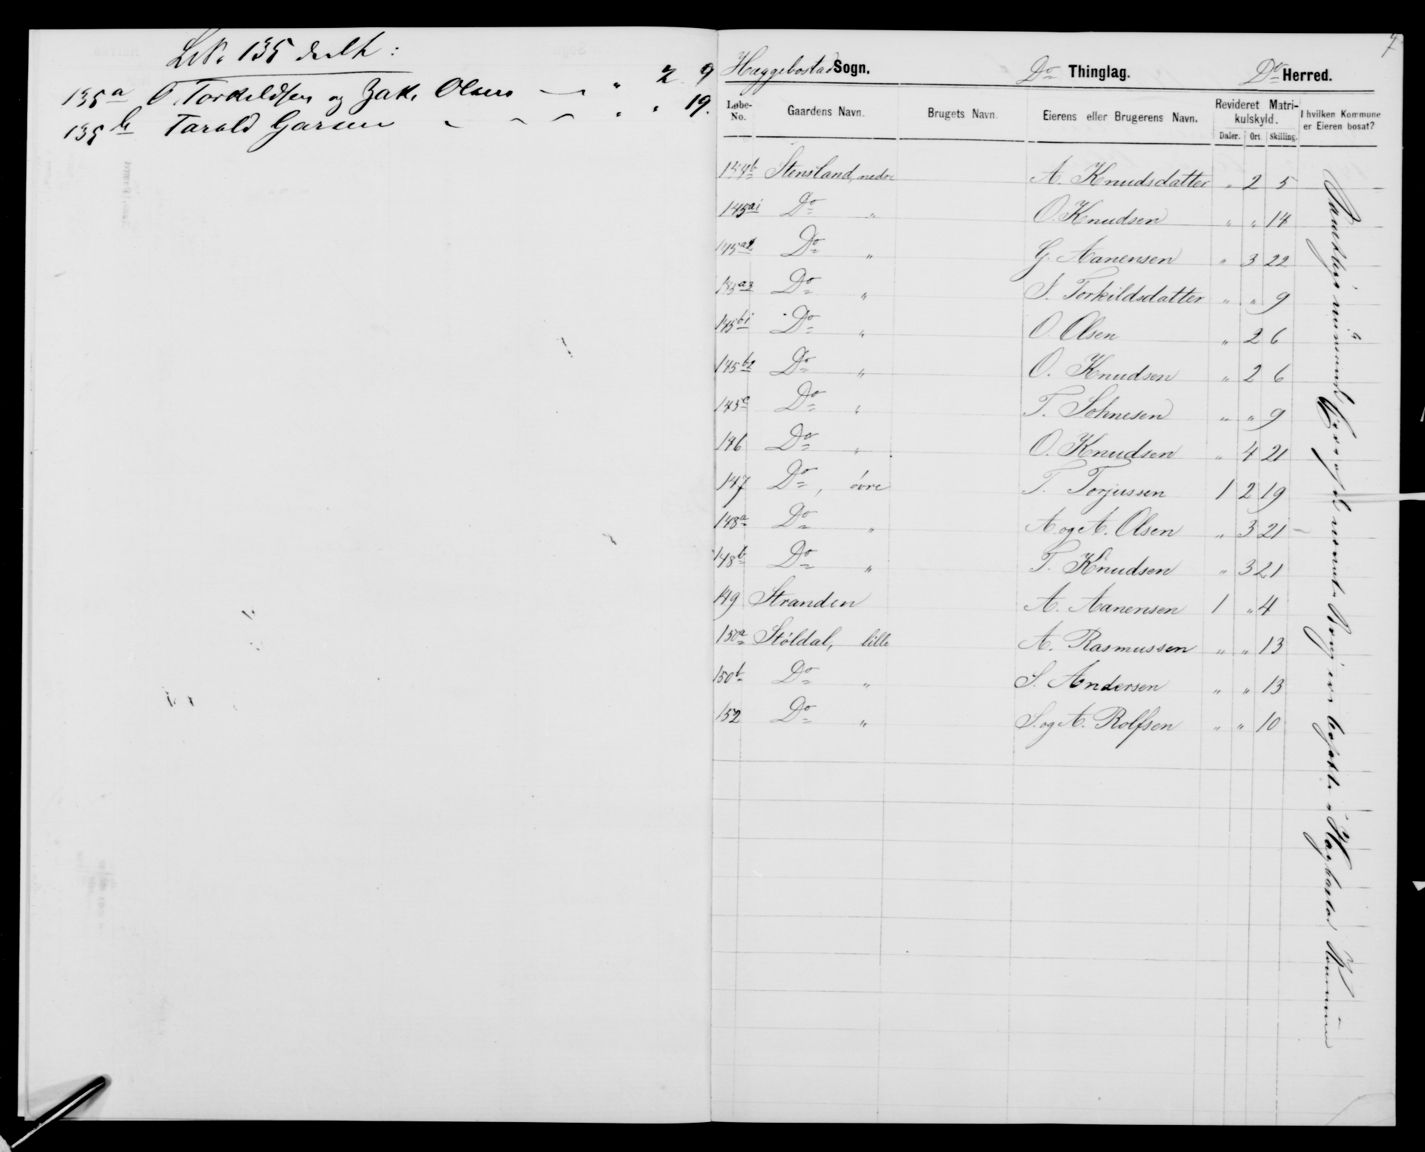 L.N. 135 deelt:
135a T. Torkildsen og Zak. Olsen — " 2 9
135b Tarald Garsen " " 19.
7
Haggebostad Sogn. Do Thinglag. Do Herred.
Løbe-No. Gaardens Navn. Brugets Navn. Eierens eller Brugerens Navn. Revideret Matrikulskyld. I hvilken Kommune er Eieren bosat?
Daler. Ort Skilling.
144b Stensland, nedre A. Knudsdatter " 2 5
145a1 Do " O. Knudsen " " 14
145a2 Do " G. Aanensen " 3 22
145a3 Do " S. Torkildsdatter " " 9
145b1 Do " O. Olsen " 2 6
145b2 Do " O. Knudsen " 2 6
145c Do " T. Sohnesen " " 9
146 Do " O. Knudsen " 4 21
147 Do, øvre T. Torjussen 1 2 19
148a Do " A. og A. Olsen " 3 21
148b Do " T. Knudsen " 3 21
149 Stranden A. Aanensen 1 " 4
150a Støldal, lille A. Rasmussen " " 13
150b Do " S. Andersen " " 13
152 Do " S. og A. Rolfsen " " 10
Kommune